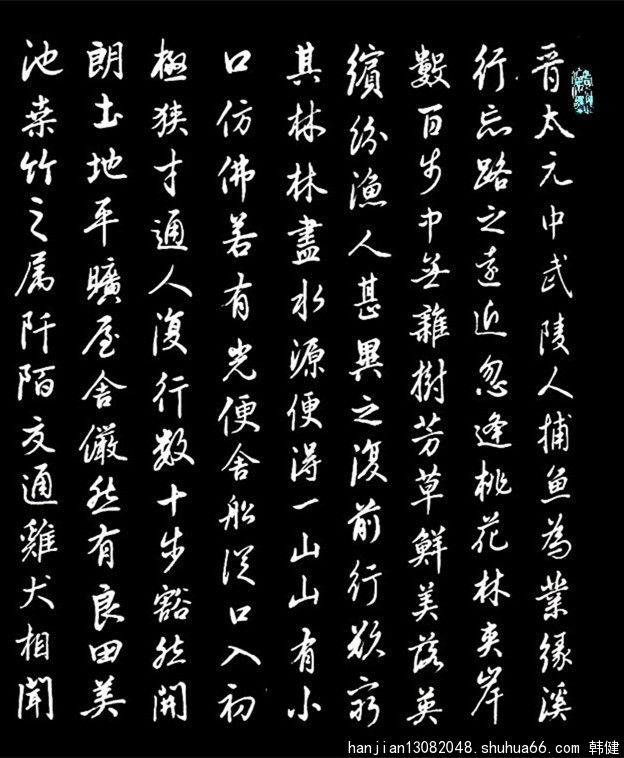 晉太元中武陵人捕魚為業緣溪
行忘路之遠近忽逢桃花林夹岸
數百步中無雜樹芳草鮮美落英
繽紛漁人甚異之復前行欲窮
其林林盡水源便得一山山有小
口仿佛若有光便舍船從口入初
極狹才通人復行数十步豁然開
朗土地平曠屋舍儼然有良田美
池桑竹之属阡陌交通雞犬相聞
hanjian13082048.shuhua66.com 韩健